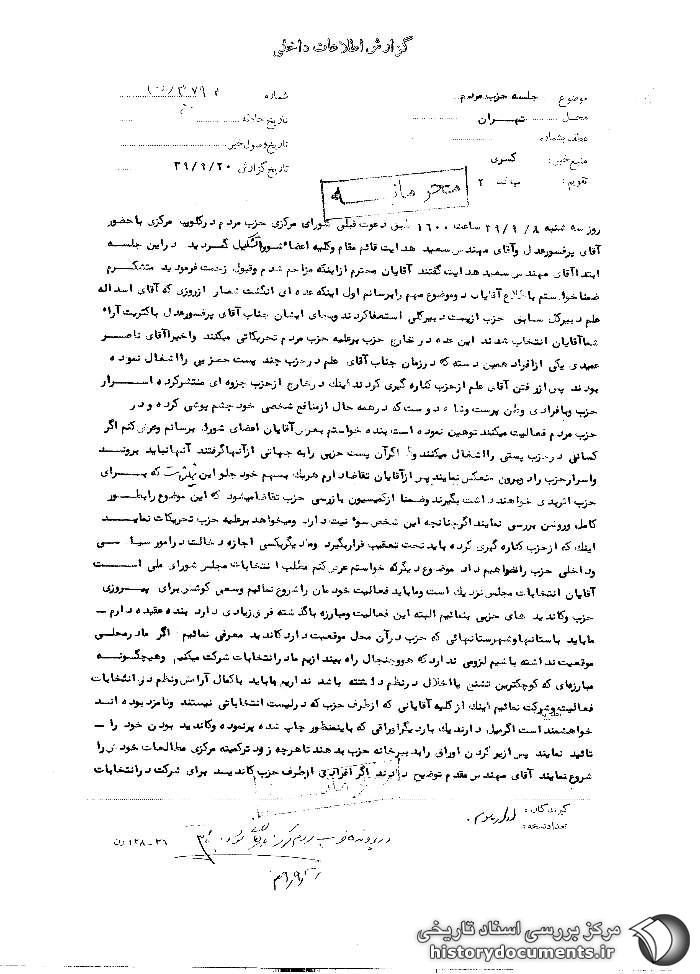 گزارش اطلاعات داخلی
موضوع جلسه حزب مردم
شماره
محل تهران
تاریخ حادثه
عطف بشماره
تاریخ وصول خبر
منبع خبر: کسری
تاریخ گزارش ۳۹/۹/۲۰
تقویم: ب ـ ۲
محرمانه
روز سه شنبه ۳۹/۹/۸ ساعت ۱۶۰۰ طبق دعوت قبلی شورای مرکزی حزب مردم در کلوپ مرکزی با حضور
آقای پرفسور عدل و آقای مهندس سعید هدایت قائم مقام و کلیه اعضاء شورا تشکیل گردید در این جلسه
ابتدا آقای مهندس سعید هدایت گفتند آقایان محترم از اینکه مزاحم شدم و قبول زحمت فرمودید متشکرم
ضمنا خواستم باطلاع آقایان دو موضوع مهم را برسانم اول اینکه عده ای انگشت شمار از روزی که آقای اسداله
علم دبیر کل سابق حزب از پست دبیر کلی استعفا کردند و بجای ایشان جناب آقای پرفسور عدل باکثریت آراء
شما آقایان انتخاب شدند این عده در خارج حزب بر علیه حزب مردم تحریکاتی میکنند و اخیرا آقای ناصر
عمیدی یکی از افراد همین دسته که در زمان جناب آقای علم در حزب چند پست حزبی را اشغال نموده
بودند پس از رفتن آقای علم از حزب کناره گیری کردند اینک در خارج از حزب جزوه ای منتشر کرده اسرار
حزب و با افرادی وطن پرست و شاه دوست که در همه حال از منافع شخصی خود چشم پوشی کرده و در
حزب مردم فعالیت میکنند توهین نموده است بنده خواستم بعرض آقایان اعضای شورا برسانم و عرض کنم اگر
کسانی در حزب پستی را اشغال میکنند و اگر آن پست حزبی را به جهاتی از آنها گرفتند آنها نباید بروند
و اسرار حزب را در بیرون منعکس نمایند پس از آقایان تقاضا دارم هر یک بسهم خود جلو این که برای
حزب اثر بدی خواهند داشت بگیرند و ضمنا از کمیسیون بازرسی حزب تقاضا میشود که این موضوع را بطور
کامل و روشن بررسی نمایند اگر چنانچه این شخص سوء نیت دارد و میخواهد بر علیه حزب تحریکات نماید
اینک که از حزب کناره گیری کرده باید تحت تعقیب قرار بگیرد و ما دیگر بکسی اجازه دخالت در امور سیاسی
و داخلی حزب را نخواهیم داد موضوع دیگر که خواستم عرض کنم مطلب انتخابات مجلس شورای ملی است
آقایان انتخابات مجلس نزدیک است و ما باید فعالیت خودمان را شروع نمائیم و سعی کوشش برای پیروزی
حزب و کاندید های حزبی بنمائیم البته این فعالیت و مبارزه با گذشته فرق زیادی دارد بنده عقیده دارم ـ
ما باید باستانها و شهرستانهائی که حزب در آن محل موقعیت دارد کاندید معرفی نمائیم اگر ما در محلی
موقعیت نداشته باشیم لزومی ندارد که هو و جنجال راه بیندازیم ما در انتخابات شرکت میکنیم و هیچگونه
مبارزه ای که کوچکترین تشنج یا اخلال در نظم داشته باشد نداریم ما باید با کمال آرامش و نظم در انتخابات
فعالیت و شرکت نمائیم اینک از کلیه آقایانی که از طرف حزب که در لیست انتخاباتی نیستند و نامزد بوده اند
خواهشمند است اگر میل دارند یک بار دیگر اوراقی که باین منظور چاپ شده پر نموده و کاندید بودن خود را ـ
تائید نمایند پس از پر کردن اوراق را به دبیرخانه حزب بدهند تا هر چه زودتر کمیته مرکزی مطالعات خودش را
شروع نمایند آقای مهندس مقدم توضیح دادند اگر افرادی از طرف حزب کاندید برای شرکت در انتخابات
گیرندگان:
تعداد نسخه:
۳۶ ـ ۱۲۸ ـ
مرکز بررسی اسناد تاریخی
historydocuments.ir